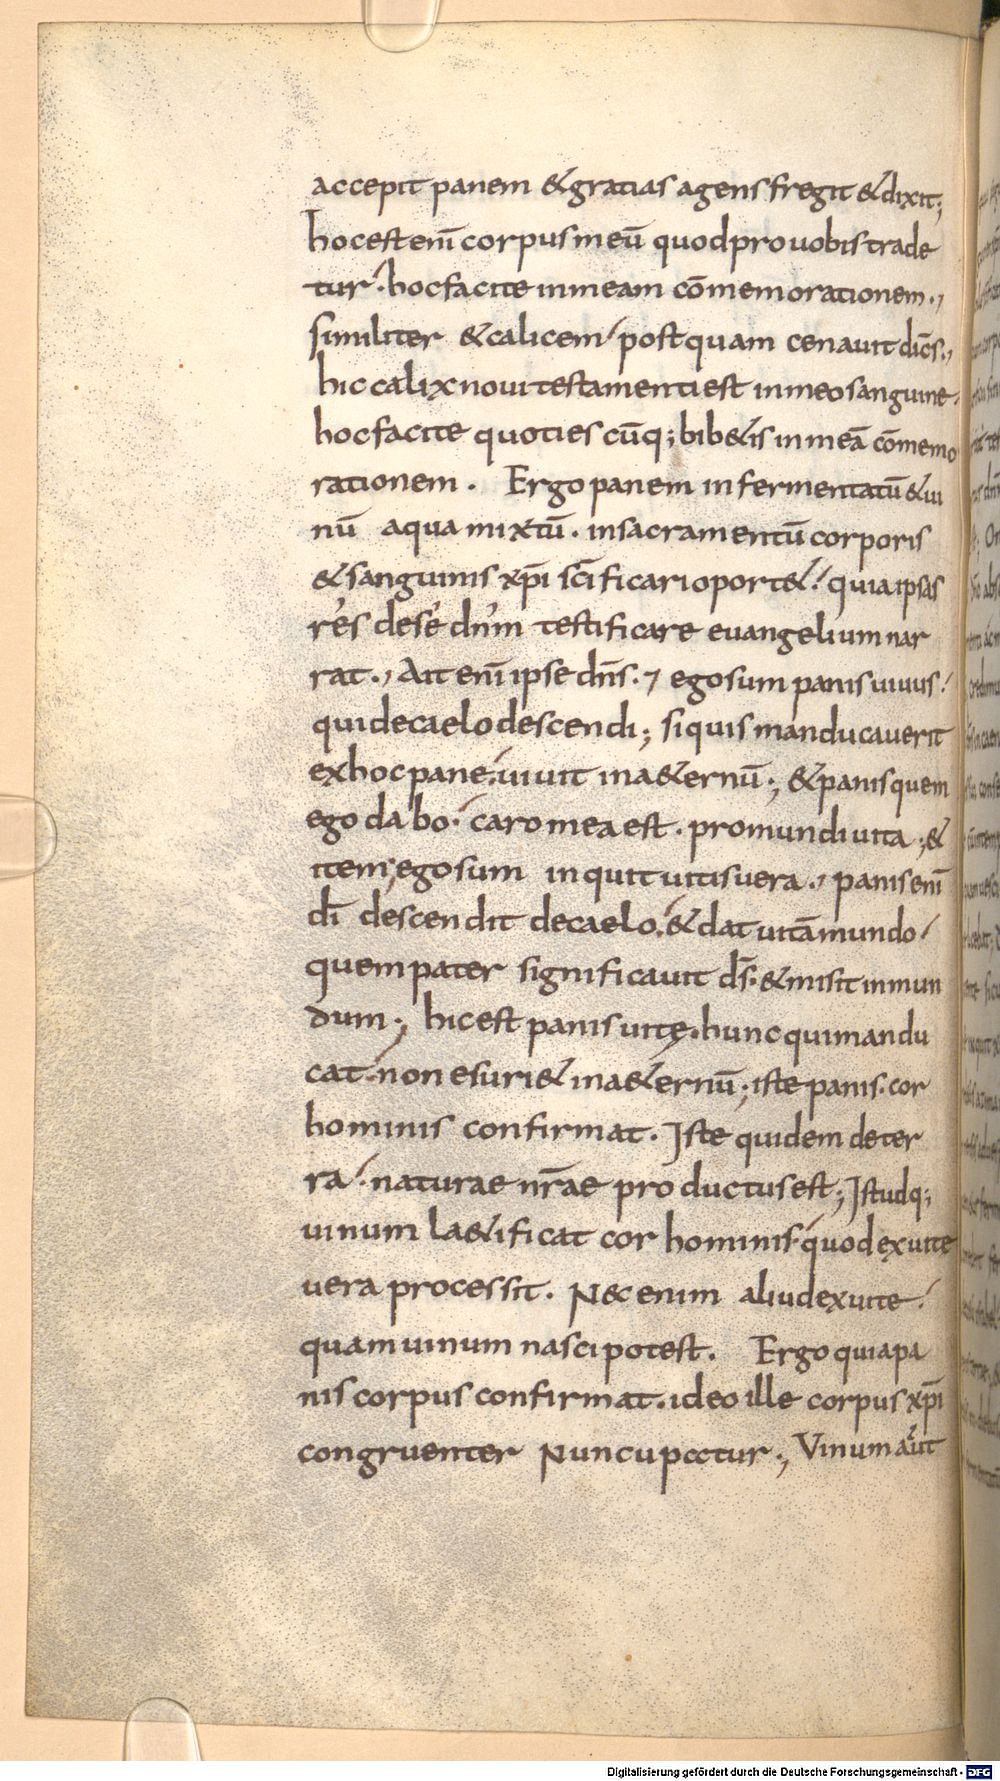 accepit panem & gratias agens fregit & dixit;
hoc est enī corpus meū quod pro uobis trade
tur. hoc facite in meam cōmemorationem.,
similiter & calicem postquam cenauit dic̄s.,
hic calix noui testamenti est in meo sanguine.
hoc facite quoties cūq; bib&is in meā cōmemo
rationem. Ergo panem infermentatū & ui
nū aqua mixtū. in sacramentū corporis
& sanguinis xp̄i sc̄ificari oport&. quia ipsas
res de se dn̄m testificare euangelium nar
rat., Ait enī ipse dn̄s., ego sum panis uiuus.
qui de caelo descendi; si quis manducauerit
ex hoc pane. uiuit in a&ernū; & panis quem
ego dabo. caro mea est. pro mundi uita; &
item; ego sum inquit uitis uera., panis enī
dī descendit de caelo. & dat uitā mundo.
quem pater significauit ds̄. & misit in mun
dum; hic est panis uitę. hunc qui mandu
cat. non esuri& in a&ernū; iste panis. cor
hominis confirmat. Iste quidem de ter
ra. naturae nr̄ae productus est; Istudq;
uinum la&ificat cor hominis. quod ex uite
uera processit. Nec enim aliud ex uite.
quam uinum nasci potest. Ergo quia pa
nis corpus confirmat. ideo ille corpus xp̄i
congruenter Nuncupatur; Vinum aut̄
Digitalisierung gefördert durch die Deutsche Forschungsgemeinschaft - DFG